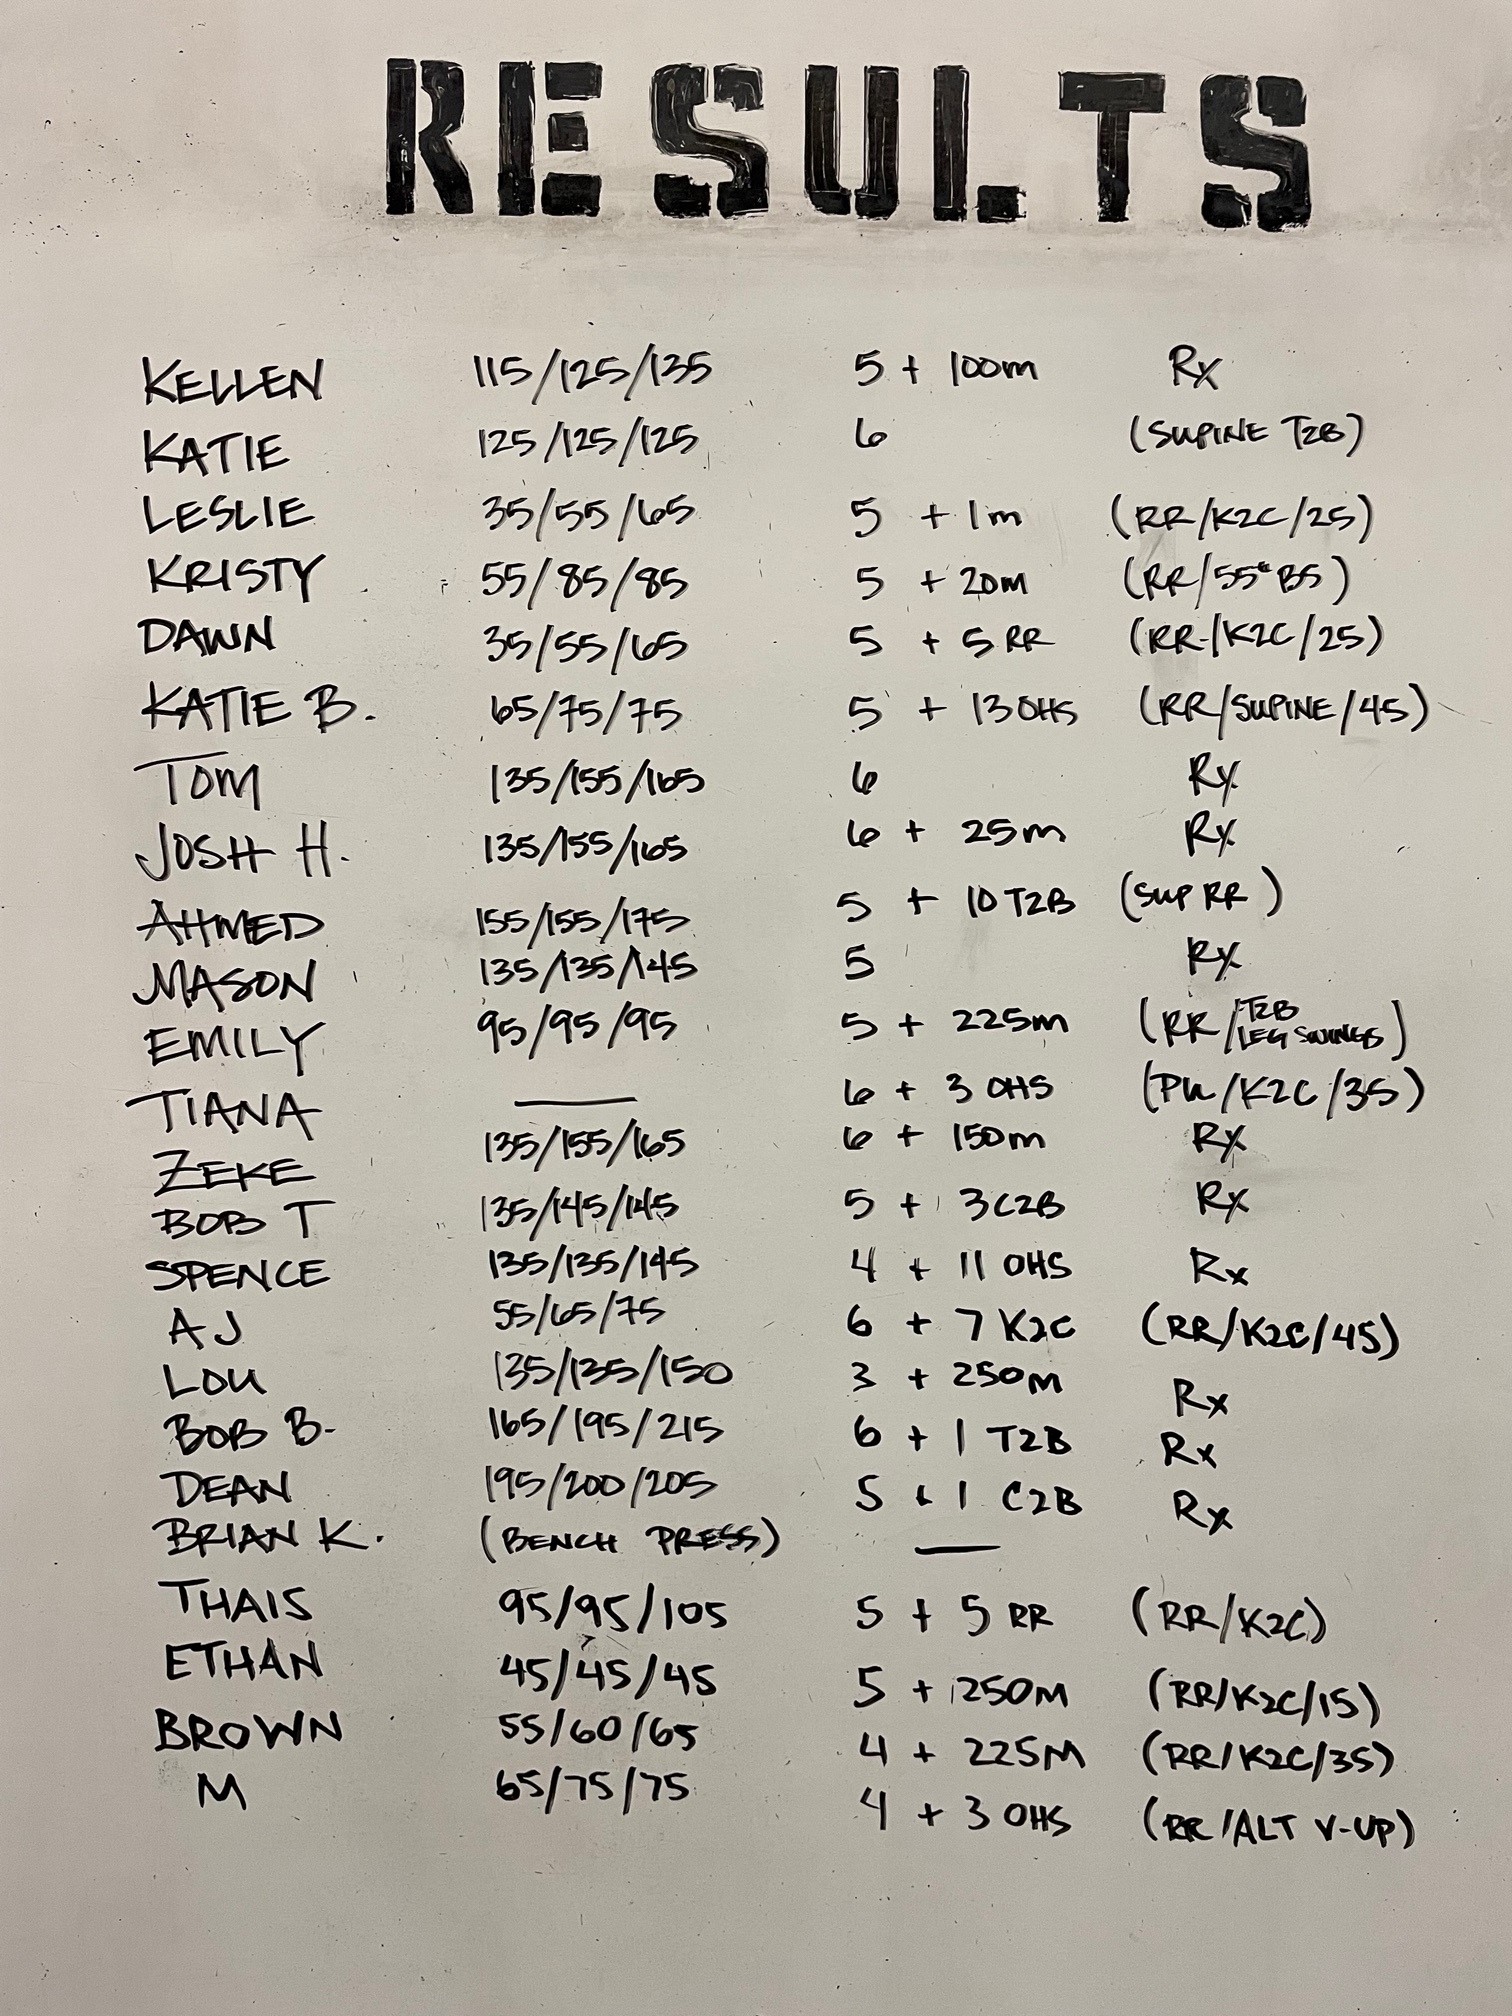 RESULTS
KELLEN 115/125/135 5 + 100m Rx
KATIE 125/125/125 6 (SUPINE T2B)
LESLIE 35/55/65 5 + 1m (RR/K2C/25)
KRISTY 55/85/85 5 + 20m (RR/55# BS)
DAWN 35/55/65 5 + 5 RR (RR/K2C/25)
KATIE B. 65/75/75 5 + 13 OHS (RR/SUPINE/45)
TOM 135/155/165 6 Rx
JOSH H. 135/155/165 6 + 25m Rx
AHMED 155/155/175 5 + 10 T2B (SUP RR)
MASON 135/135/145 5 Rx
EMILY 95/95/95 5 + 225m (RR/T2B LEG SWINGS)
TIANA — 6 + 3 OHS (PU/K2C/35)
ZEKE 135/155/165 6 + 150m Rx
BOB T 135/145/145 5 + 3 C2B Rx
SPENCE 135/135/145 4 + 11 OHS Rx
AJ 55/65/75 6 + 7 K2C (RR/K2C/45)
LOU 135/135/150 3 + 250M Rx
BOB B. 165/195/215 6 + 1 T2B Rx
DEAN 195/200/205 5 + 1 C2B Rx
BRIAN K. (BENCH PRESS) —
THAIS 95/95/105 5 + 5 RR (RR/K2C)
ETHAN 45/45/45 5 + 250M (RR/K2C/15)
BROWN 55/60/65 4 + 225M (RR/K2C/35)
M 65/75/75 4 + 3 OHS (RR/ALT V-UP)